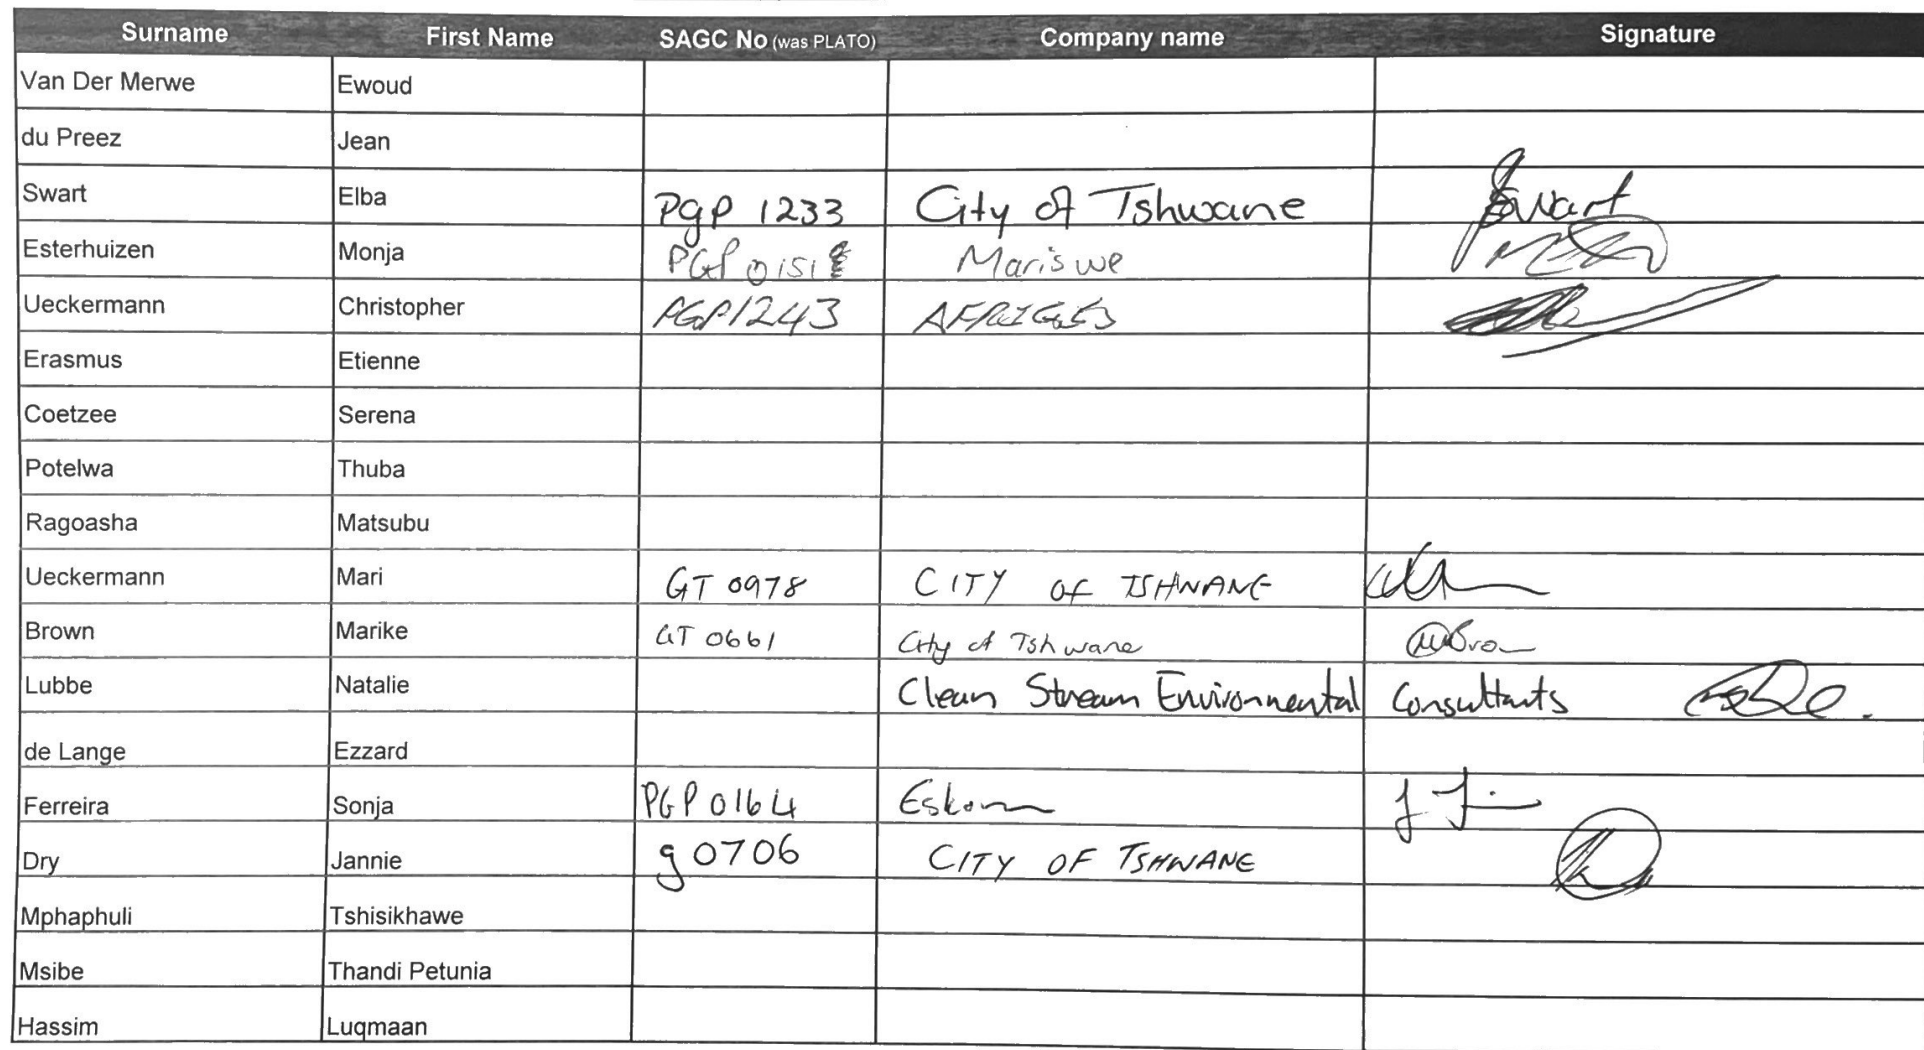 Surname First Name SAGC No (was PLATO) Company name Signature
Van Der Merwe Ewoud
du Preez Jean
Swart Elba PgP 1233 City of Tshwane Swart
Esterhuizen Monja PGP 0151 Mariswe
Ueckermann Christopher PGP1243 AFRIGIS
Erasmus Etienne
Coetzee Serena
Potelwa Thuba
Ragoasha Matsubu
Ueckermann Mari GT 0978 CITY OF TSHWANE
Brown Marike GT 0661 City of Tshwane
Lubbe Natalie Clean Stream Environmental Consultants
de Lange Ezzard
Ferreira Sonja PGP 0164 Eskom
Dry Jannie g0706 CITY OF TSHWANE
Mphaphuli Tshisikhawe
Msibe Thandi Petunia
Hassim Luqmaan